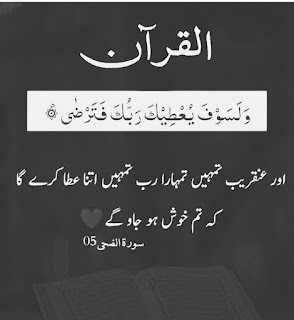 القرآن
وَلَسَوْفَ يُعْطِيْكَ رَبُّكَ فَتَرْضٰى ۞
اور عنقریب تمہیں تمہارا رب تمہیں اتنا عطا کرے گا
کہ تم خوش ہو جاو گے
سورۃ الضحى 05